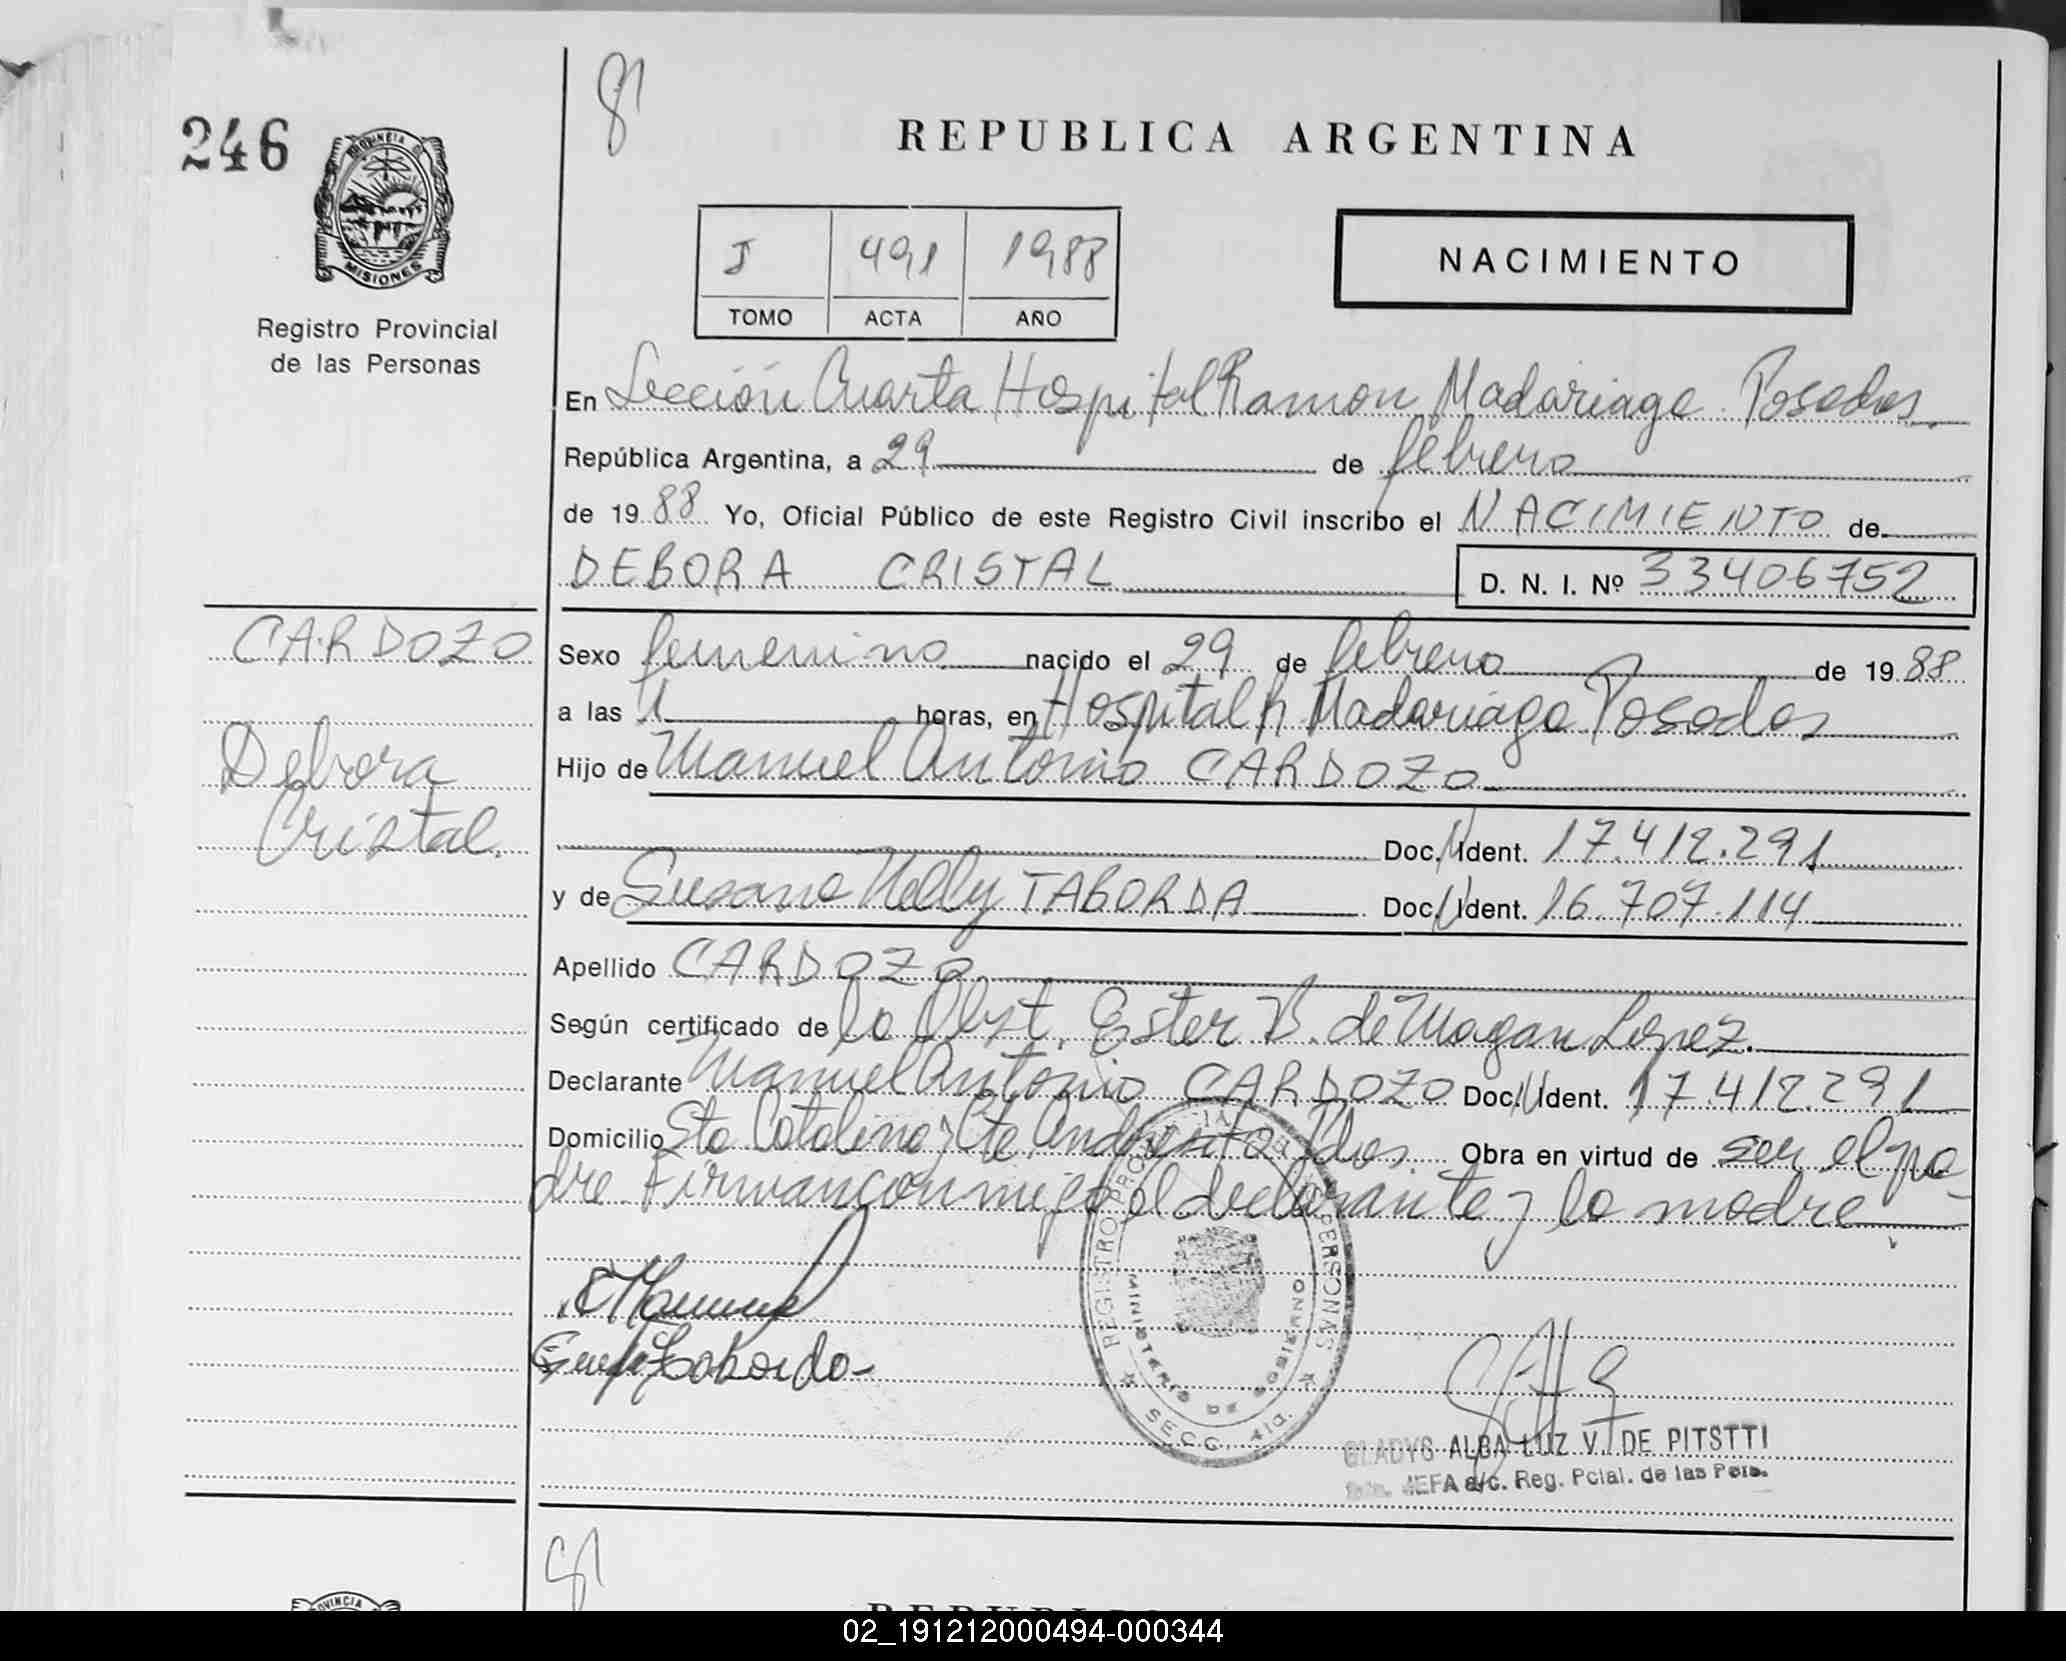 246
PROVINCIA D
MISIONES
Registro Provincial
de las Personas
REPUBLICA ARGENTINA
I 491 1988
TOMO ACTA AÑO
NACIMIENTO
En Sección Cuarta Hospital Ramon Madariaga Posadas
República Argentina, a 29 de febrero
de 1988 Yo, Oficial Público de este Registro Civil inscribo el NACIMIENTO de
DEBORA CRISTAL D. N. I. Nº 33406752
CARDOZO
Debora
Cristal.
Sexo femenino nacido el 29 de febrero de 1988
a las horas, en Hospital R Madariaga Posadas
Hijo de Manuel Antonio CARDOZO
Doc. Ident. 17.412.291
y de Susana Nelly TABORDA Doc. Ident. 16.707.114
Apellido CARDOZO
Según certificado de la Obst. Ester B. de Magan Lopez.
Declarante Manuel Antonio CARDOZO Doc. Ident. 17.412.291
Domicilio Sta Catalina y Cte Pdas. Obra en virtud de ser el pa-
dre Firman conmigo el declarante y la madre
REGISTRO PERSONAS
MINISTERIO DE GOBIERNO
SECC. 4ta.
GLADYS ALBA LUZ V. DE PITSTTI
JEFA a/c. Reg. Pcial. de las Pers.
02_191212000494-000344